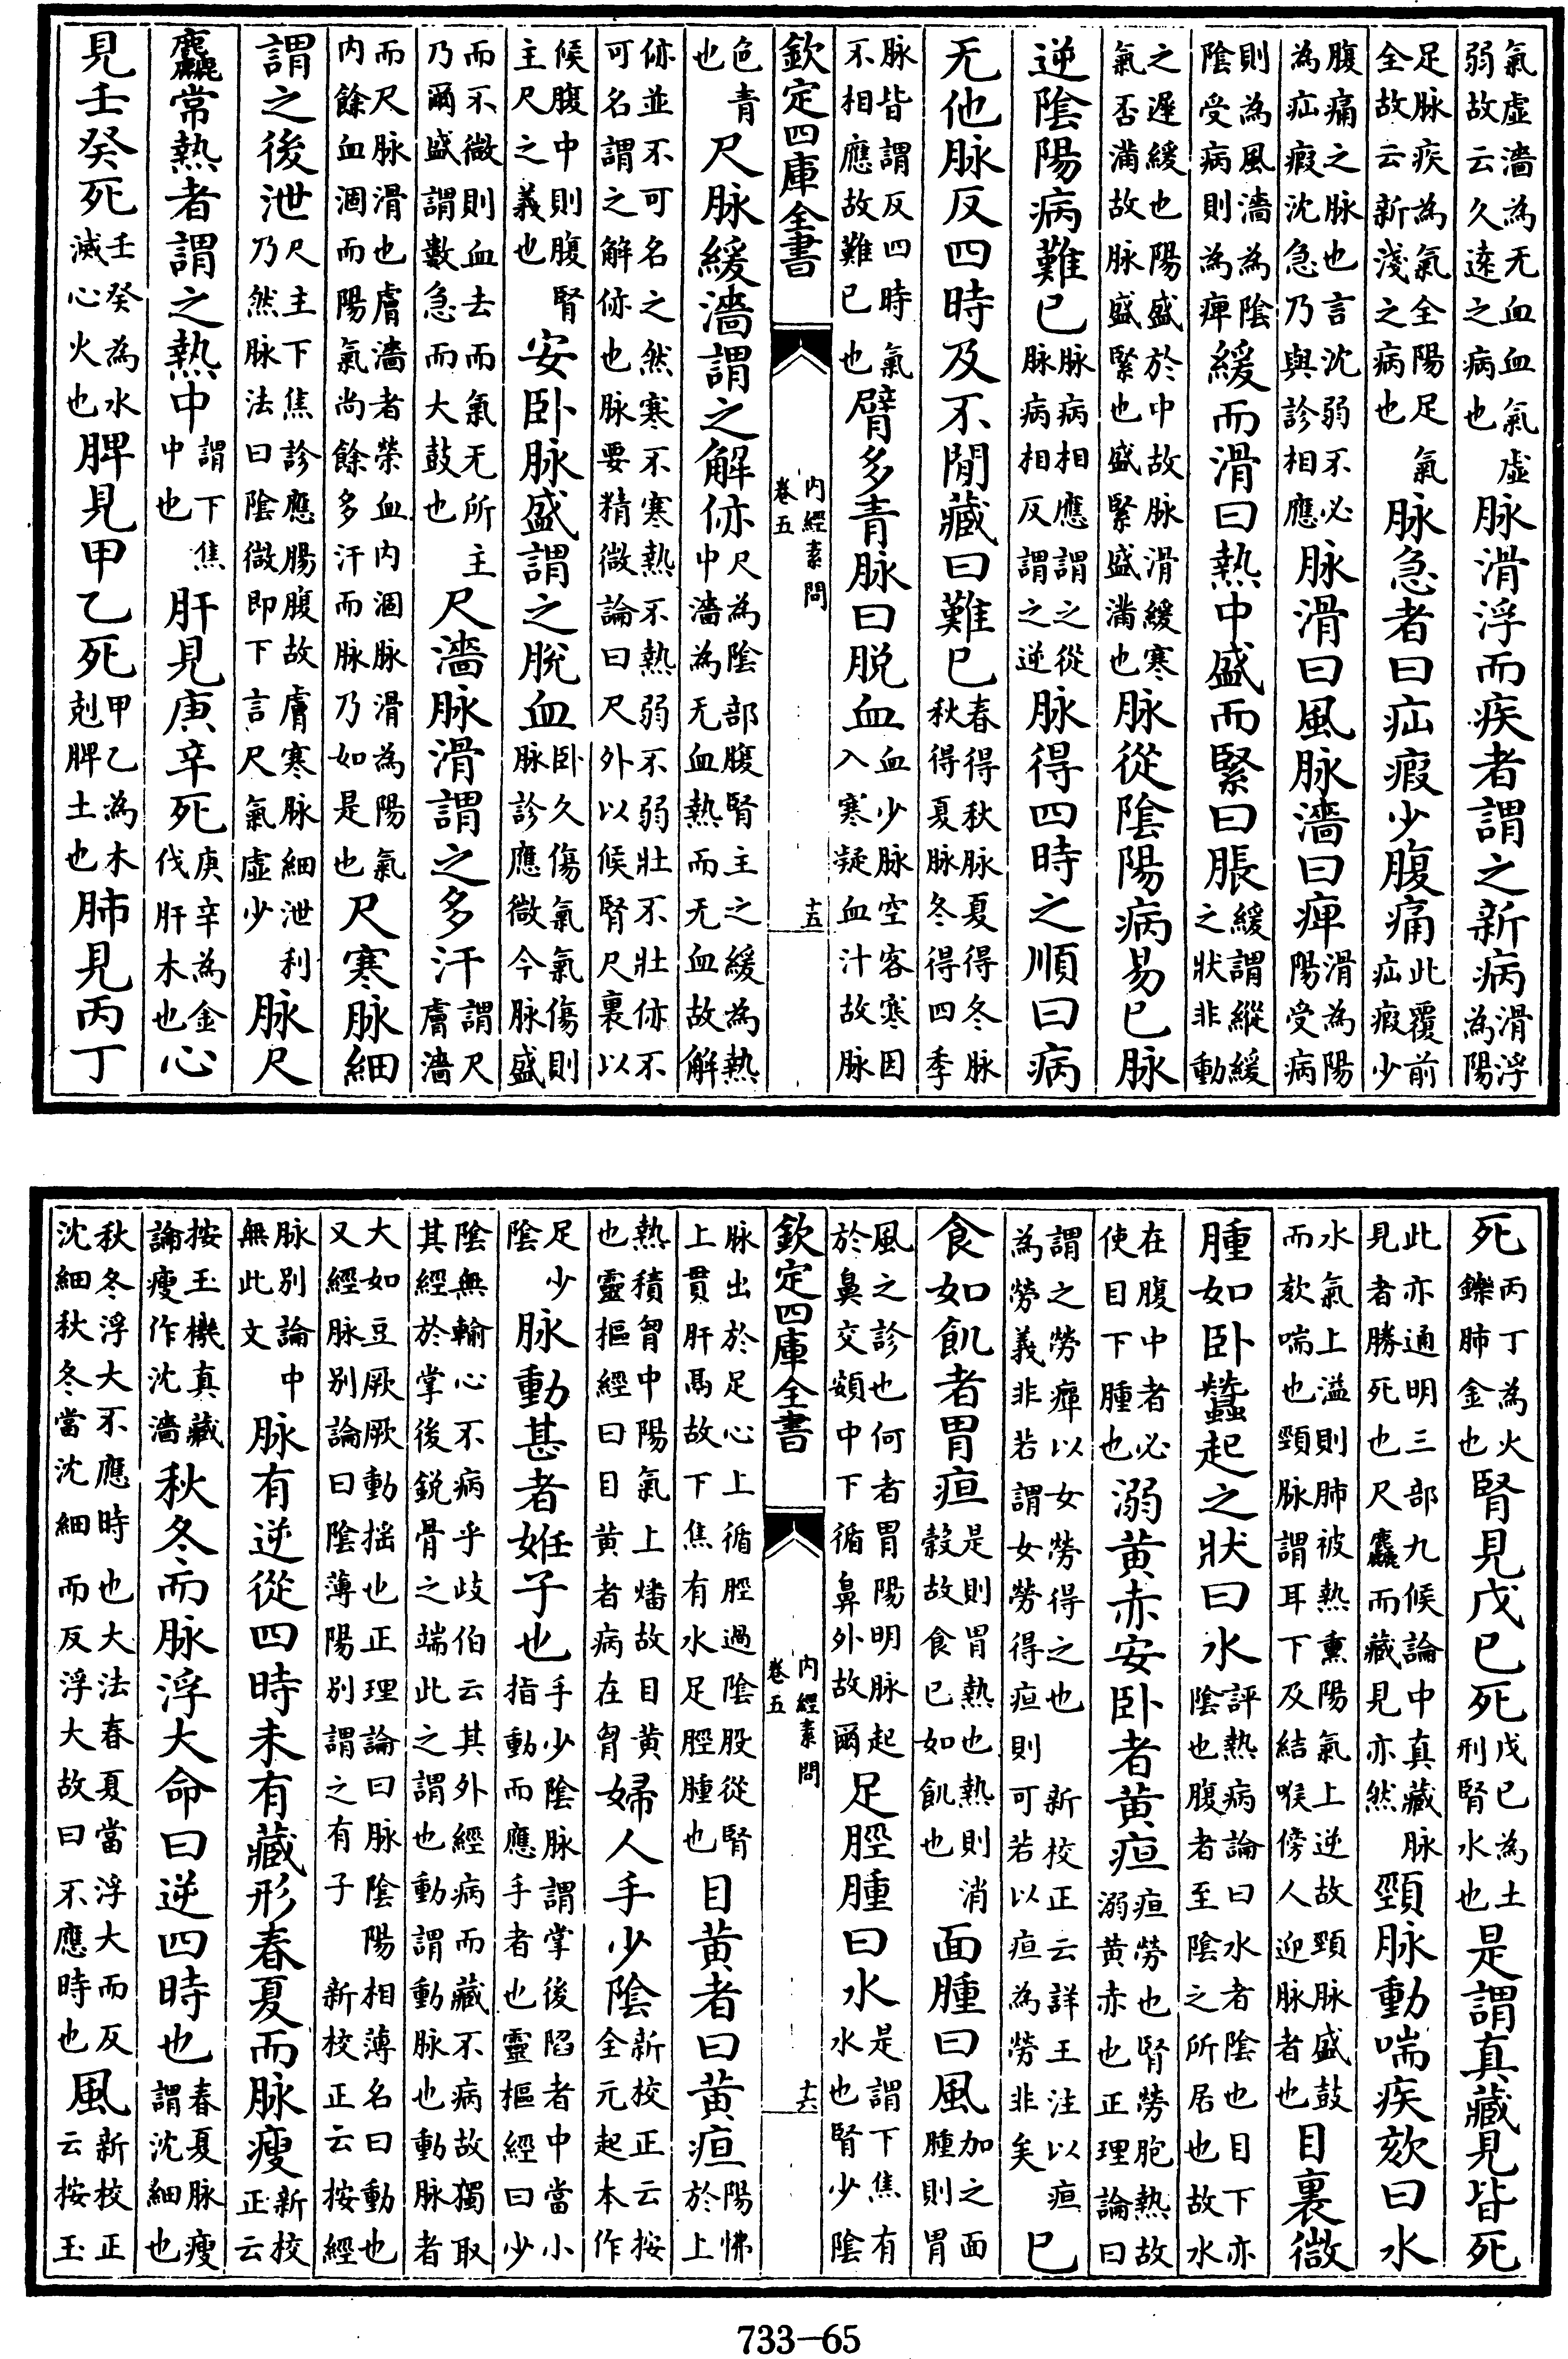 氣虛濇為无血血氣虛弱故云久遠之病也脉滑浮而疾者謂之新病滑浮為陽
足脉疾為氣全陽足氣全故云新淺之病也脉急者曰疝瘕少腹痛此覆前疝瘕少
腹痛之脉也言沈弱不必為疝瘕沈急乃與診相應脉滑曰風脉濇曰痺滑為陽陽受病
則為風濇為陰陰受病則為痺緩而滑曰熱中盛而緊曰脹緩謂縱緩之狀非動
之遲緩也陽盛於中故脉滑緩寒氣否滿故脉盛緊也盛緊盛滿也脉從陰陽病易已脉
逆陰陽病難已脉病相應謂之從脉病相反謂之逆脉得四時之順曰病
无他脉反四時及不閒藏曰難已春得秋脉夏得冬脉秋得夏脉冬得四季
脉皆謂反四時氣不相應故難已也臂多青脉曰脱血血少脉空客寒因入寒凝血汁故脉
欽定四庫全書 內經素問 卷五 十五
色青也尺脉緩濇謂之解㑊尺為陰部腹腎主之緩為熱中濇為无血熱而无血故解
㑊並不可名之然寒不寒熱不熱弱不弱壯不壯㑊不可名謂之解㑊也脉要精微論曰尺外以候腎尺裏以
候腹中則腹腎主尺之義也安卧脉盛謂之脫血卧久傷氣氣傷則脉診應微今脉盛
而不微則血去而氣无所主乃爾盛謂數急而大鼓也尺濇脉滑謂之多汗謂尺膚濇
而尺脉滑也膚濇者榮血內涸脉滑為陽氣內餘血涸而陽氣尚餘多汗而脉乃如是也尺寒脉細
謂之後泄尺主下焦診應腸腹故膚寒脉細泄利乃然脉法曰陰微即下言尺氣虛少脉尺
麤常熱者謂之熱中謂下焦中也肝見庚辛死庚辛為金伐肝木也心
見壬癸死壬癸為水滅心火也脾見甲乙死甲乙為木剋脾土也肺見丙丁
死丙丁為火鑠肺金也腎見戊已死戊已為土刑腎水也是謂真藏見皆死
此亦通明三部九候論中真藏脉見者勝死也尺麤而藏見亦然頸脉動喘疾欬曰水
水氣上溢則肺被熱熏陽氣上逆故頸脉盛鼓而欬喘也頸脉謂耳下及結喉傍人迎脉者也目裏微
腫如卧蠶起之狀曰水評熱病論曰水者陰也目下亦陰也腹者至陰之所居也故水
在腹中者必使目下腫也溺黄赤安卧者黄疸疸勞也腎勞胞熱故溺黄赤也正理論曰
謂之勞癉以女勞得之也為勞義非若謂女勞得疸則可若以疸為勞非矣新校正云詳王注以疸已
食如飢者胃疸是則胃熱也熱則消穀故食已如飢也面腫曰風加之面腫則胃
風之診也何者胃陽明脉起於鼻交頞中下循鼻外故爾足脛腫曰水是謂下焦有水也腎少陰
欽定四庫全書 內經素問 卷五 十六
脉出於足心上循脛過陰股從腎上貫肝鬲故下焦有水足脛腫也目黄者曰黄疸陽怫於上
熱積胷中陽氣上燔故目黄也靈樞經曰目黄者病在胷婦人手少陰新校正云按全元起本作
足少陰脉動甚者姙子也手少陰脉謂掌後陷者中當小指動而應手者也靈樞經曰少
陰無輸心不病乎歧伯云其外經病而藏不病故獨取其經於掌後鋭骨之端此之謂也動謂動脉也動脉者
大如豆厥厥動揺也正理論曰脉陰陽相薄名曰動也又經脉別論曰陰薄陽別謂之有子新校正云按經
脉別論中無此文脉有逆從四時未有藏形春夏而脉瘦新校正云
按玉機真藏論瘦作沈濇秋冬而脉浮大命曰逆四時也春夏脉瘦謂沈細也
秋冬浮大不應時也大法春夏當浮大而反沈細秋冬當沈細而反浮大故曰不應時也風新校正云按玉
733-65